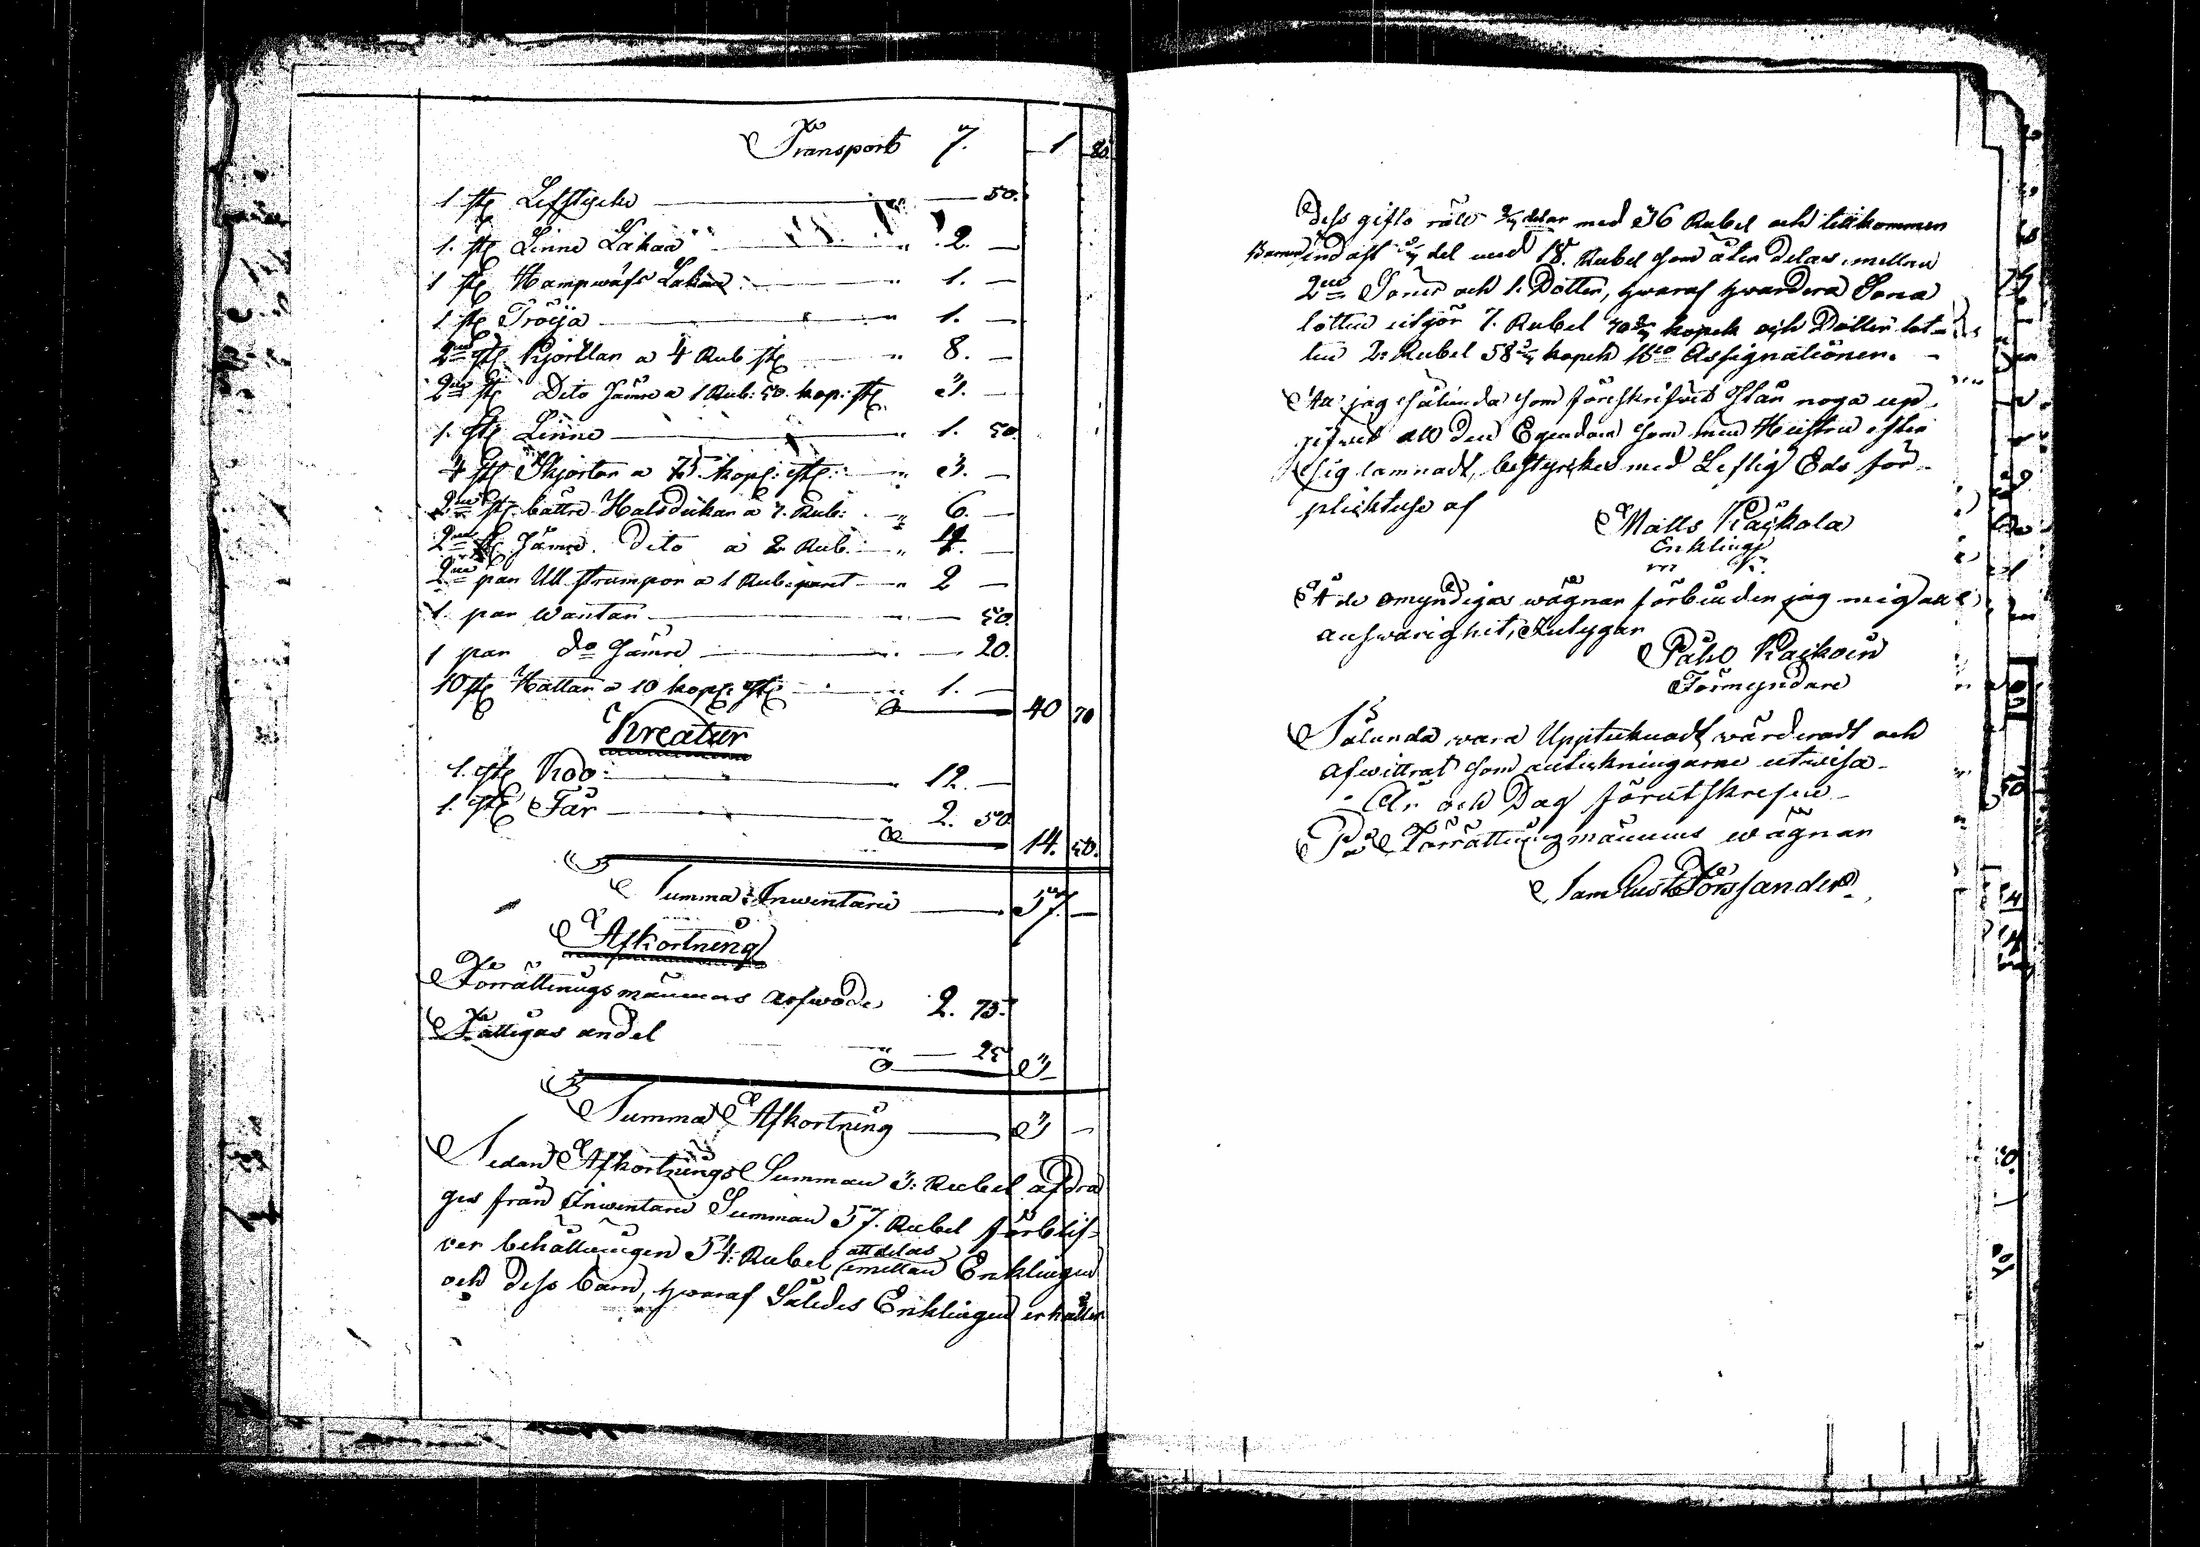 Transport 7. 1 80.
1 st Lifstycke 50.
1. st Linne Lakan " 2. —
1 st Hampwäfs Lakan " 1. —
1 st Tröija " 1. —
2ne st Kjortlar a 4 Rub st " 8. —
2ne st Dito sämre a 1 Rub: 50. kop: st 3. —
1. st Linne " 1. 50
4 st Skjortor a 75. kop: st: " 3. —
2ne st bättre Halsdukar a 3. Rub: " 6. —
2ne st sämre Dito a 2 Rub. " 4. —
2ne par Ull strumpor a 1 Rub: paret " 2 —
1. par Wantar 50.
1 par do sämre 20.
10 st Hattar a 10 kop: st " 1. —
40 70
Kreatur
1. st Koo: 12. —
1. st Får 2. 50
14. 50.
Summa Inwentarii 57. —
Afkortning
Förrättningsmännens arfwode 2. 75.
Fattigas andel " — 25
3 —
Summa Afkortning 3 —
Sedan Afkortnings Summan 3: Rubel afdra
ges från Inwentarii Summan 57. Rubel förblif-
ver behållningen 54: Rubel att delas
emellan Enklingen
och dess barn, hwaraf Således Enklingen erhåller
Dess gifto rätt 2/3 delar med 36 Rubel och tillkommer
Barnen endast 1/3 del med 18. Rubel som åter delas mellan
2ne Söner och 1. Dotter, hwaraf hwardera Sona
lotten utgör 7. Rubel kopek och Dotter lot-
ten Rubel 58 kopek Bco Assignationer. —
Att jag sålunda som föreskrifwit står noga up-
gifwit all den Egendom som min Hustru efter
sig lämnadt, bestyrkes med Liflig Eds för-
plichtelse af
Matts Kaikola
Enkling
På de omyndigas wägnar förbinder jag mig all
answarighet, Intygar
Påhl Kaikoin
Förmyndare
Sålunda wara Upptecknadt, wärderadt och
afwittrat som anteckningarne utwisa
År och Dag förutskrefne
På Förrättningsmännens wägnar
Sam Gust Forssander.